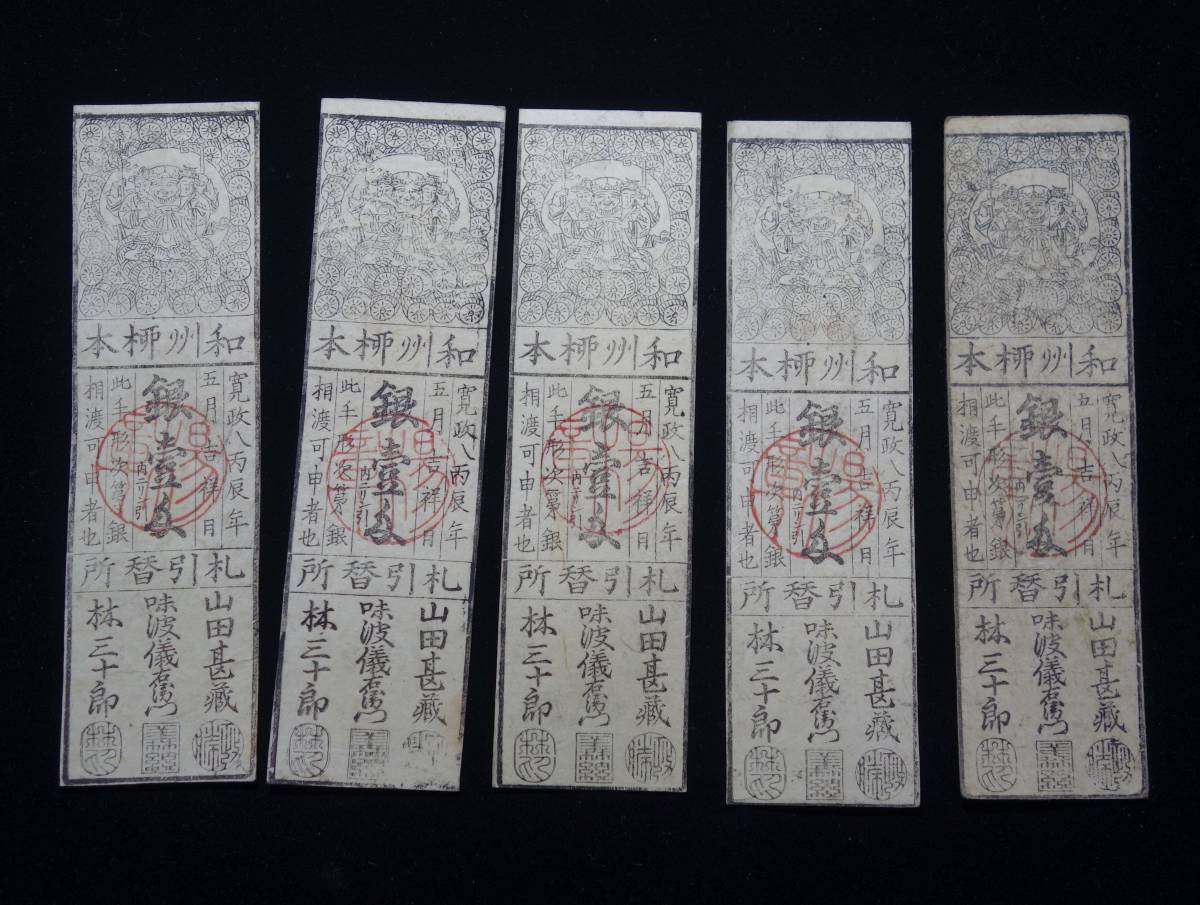 和州柳本
寛政八丙辰年
五月吉祥日
銀壹匁
内ニリン引
此手形次第銀
相渡可申者也
札引替所
山田甚藏
味波儀右衛門
林三十郎
和州柳本
寛政八丙辰年
五月吉祥日
銀壹匁
内ニリン引
此手形次第銀
相渡可申者也
札引替所
山田甚藏
味波儀右衛門
林三十郎
和州柳本
寛政八丙辰年
五月吉祥日
銀壹匁
内ニリン引
此手形次第銀
相渡可申者也
札引替所
山田甚藏
味波儀右衛門
林三十郎
和州柳本
寛政八丙辰年
五月吉祥日
銀壹匁
内ニリン引
此手形次第銀
相渡可申者也
札引替所
山田甚藏
味波儀右衛門
林三十郎
和州柳本
寛政八丙辰年
五月吉祥日
銀壹匁
内ニリン引
此手形次第銀
相渡可申者也
札引替所
山田甚藏
味波儀右衛門
林三十郎